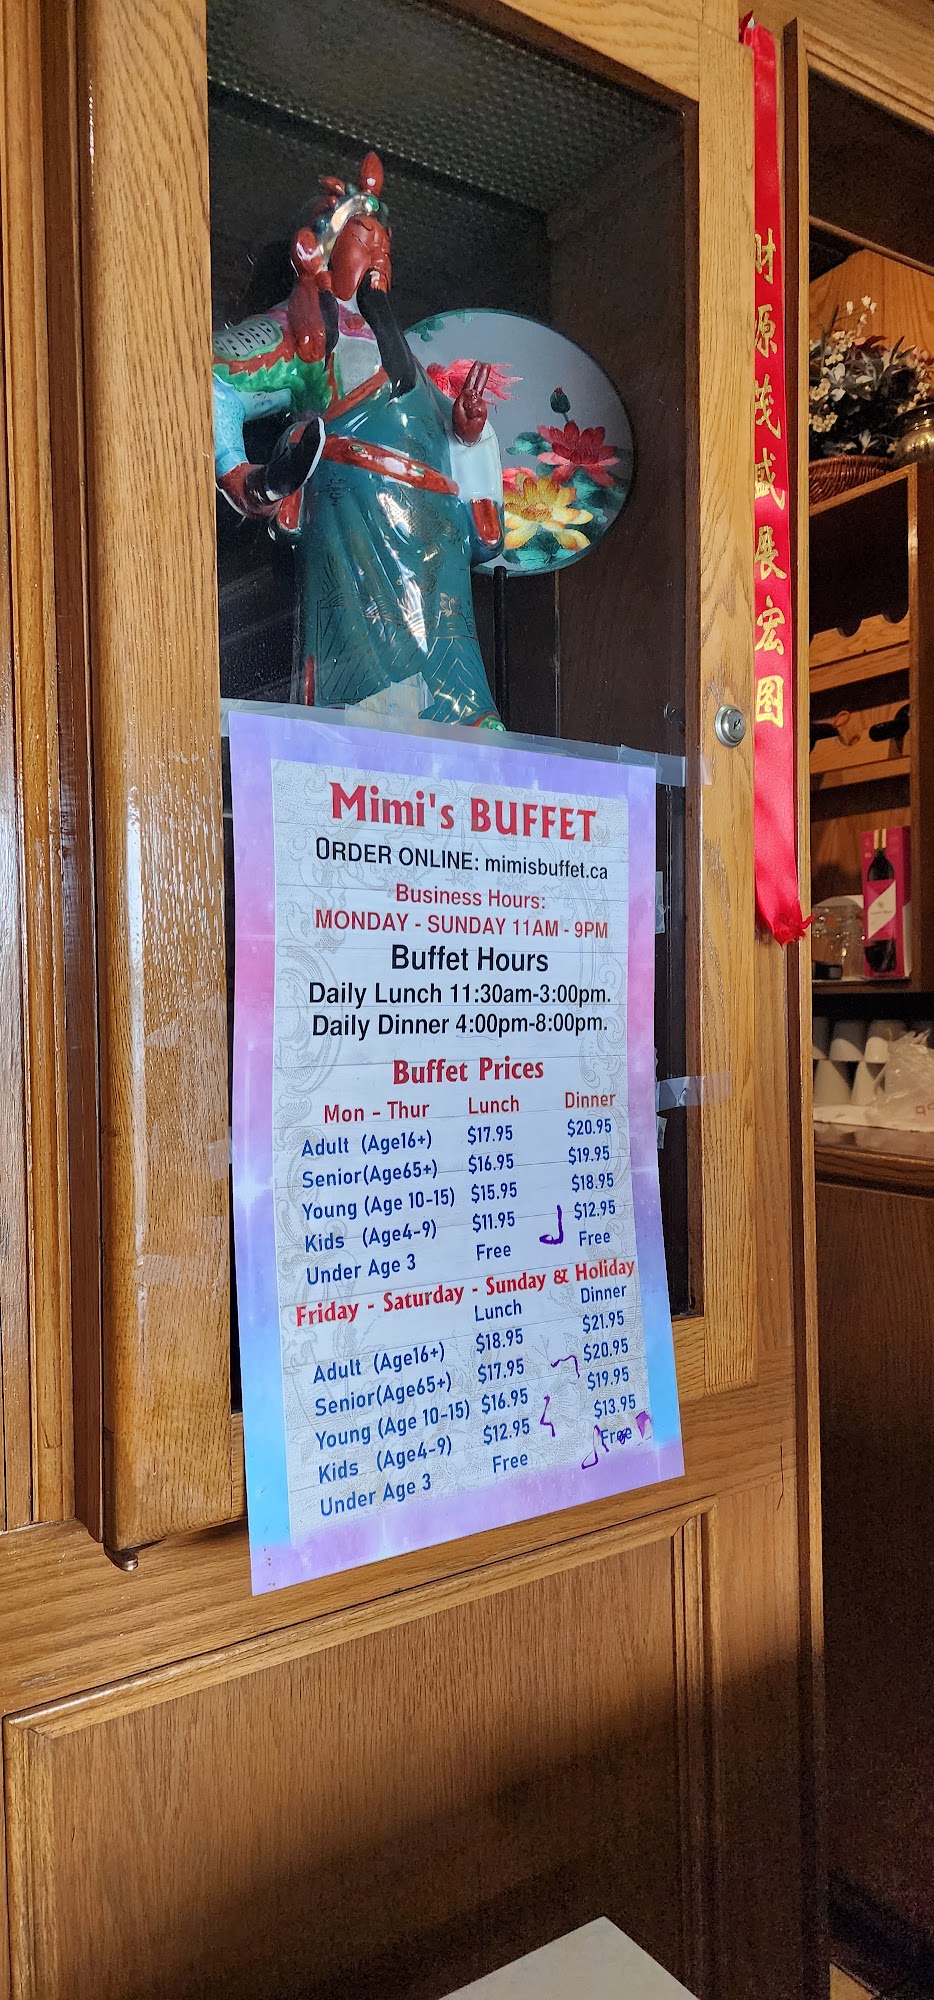 Mimi's BUFFET
ORDER ONLINE: mimisbuffet.ca
Business Hours:
MONDAY - SUNDAY 11AM - 9PM
Buffet Hours
Daily Lunch 11:30am-3:00pm.
Daily Dinner 4:00pm-8:00pm.
Buffet Prices
Mon - Thur Lunch Dinner
Adult (Age16+) $17.95 $20.95
Senior(Age65+) $16.95 $19.95
Young (Age 10-15) $15.95 $18.95
Kids (Age4-9) $11.95 $12.95
Under Age 3 Free Free
Friday - Saturday - Sunday & Holiday
Lunch Dinner
Adult (Age16+) $18.95 $21.95
Senior(Age65+) $17.95 $20.95
Young (Age 10-15) $16.95 $19.95
Kids (Age4-9) $12.95 $13.95
Under Age 3 Free Free
财源茂盛展宏图